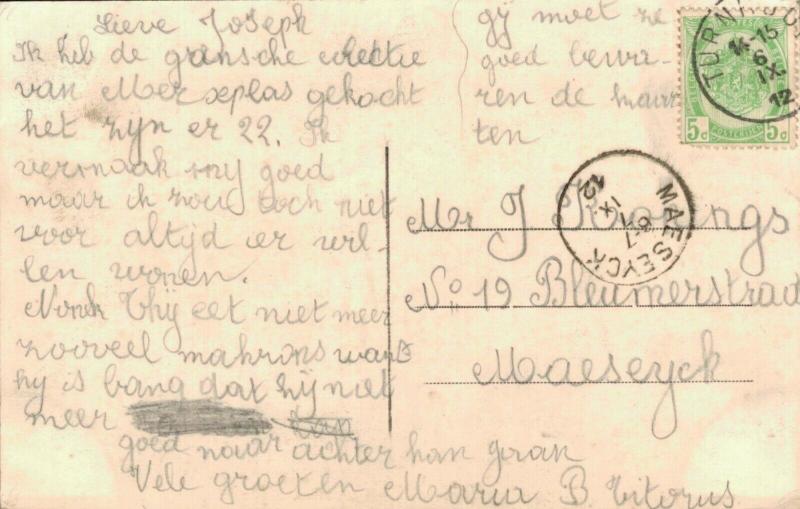 Lieve Joseph
Ik heb de gansche collectie
van Merxplas gekocht
het zyn er 22. Ik
vermaak my goed
maar ik zou toch niet
voor altyd er wil-
len wonen.
Nonk Thy eet niet meer
zooveel makrons want
hy is bang dat hy niet
meer
goed naar achter kan gaan
Vele groeten Maria B.
gy moet ze
goed bewa-
ren de kaar
ten
TURNH
15
6
IX
12
5c POSTERIJEN 5c
MAESEYCK
6-7
IX
12
Mr J
No 19 Bleumerstraat
Maeseyck